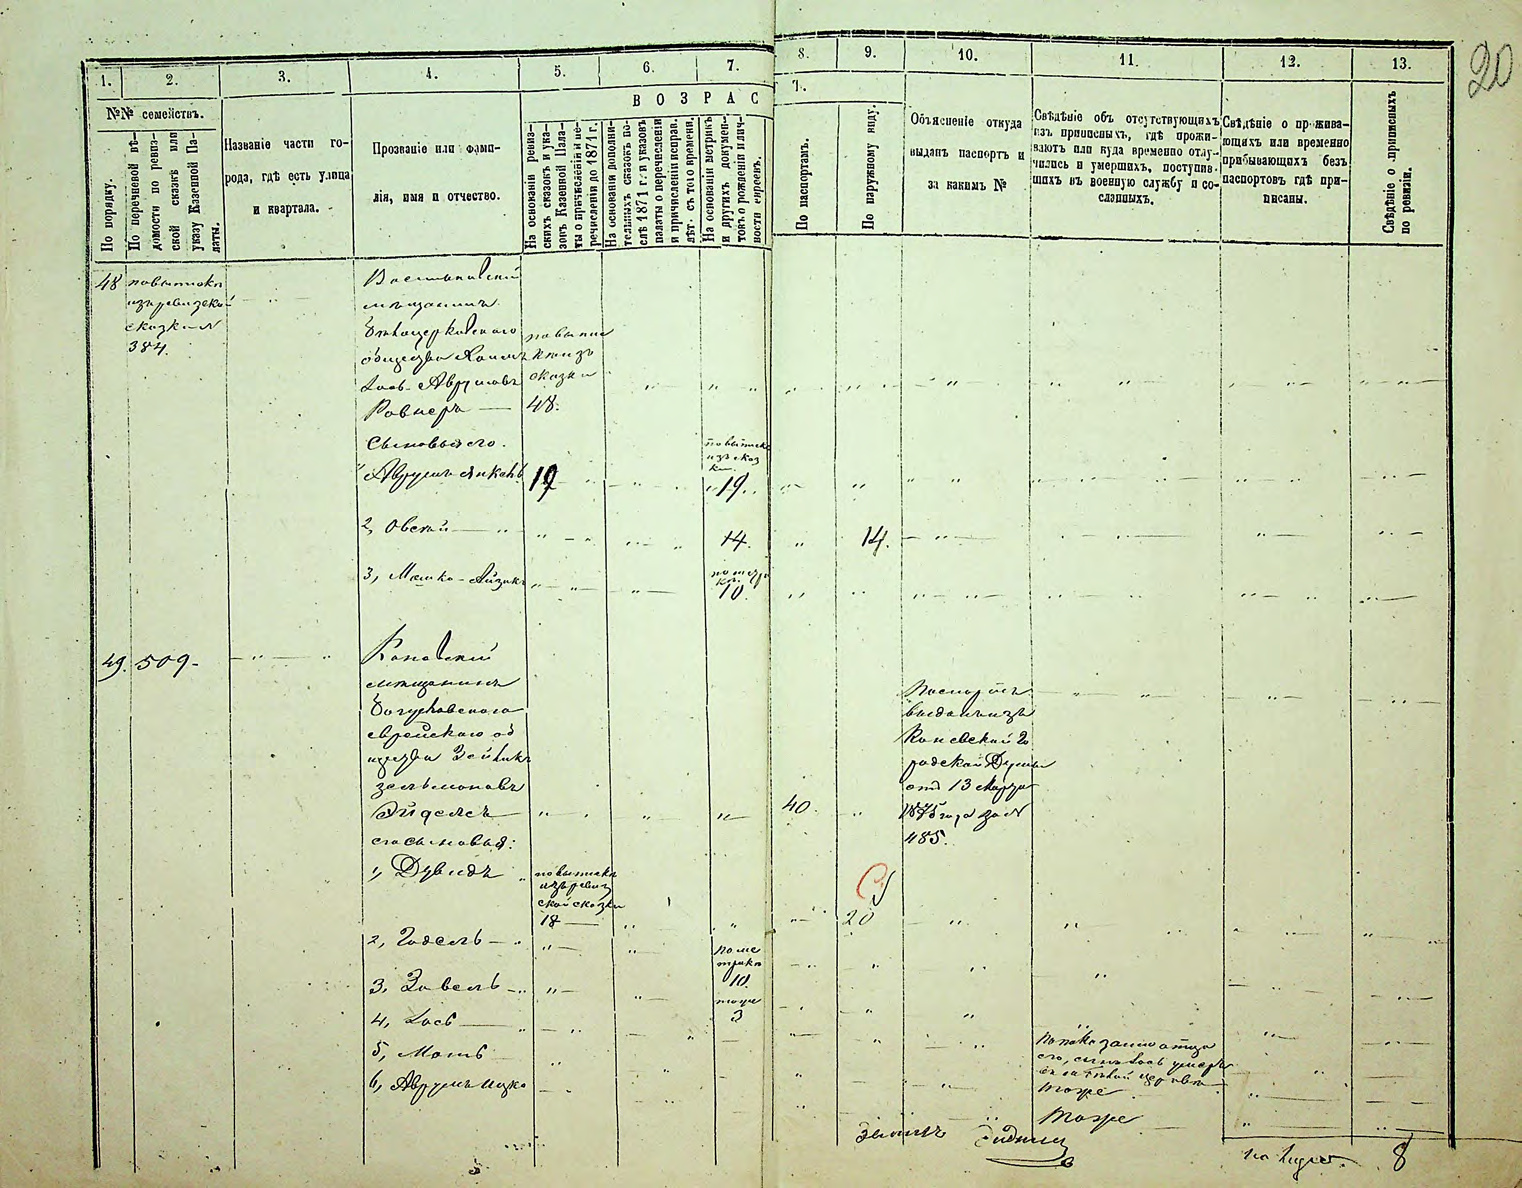 20
1. 2. 3. 4. 5. 6. 7. 8. 9. 10. 11. 12. 13.
ВОЗРАС
Т.
№№ семействъ.
По порядку.
По перечневой вѣ-
домости по ревиз-
ской сказкѣ или
указу Казенной Па-
латы.
Названіе части го-
рода, гдѣ есть улица
и квартала.
Прозваніе или фами-
лія, имя и отчество.
На основаніи ревиз-
скихъ сказокъ и ука-
зовъ Казенной Пала-
ты о причисленіи и пе-
речисленіи до 1871 г.
На основаніи дополни-
тельныхъ сказокъ по-
слѣ 1871 г. и указовъ
палаты о перечисленіи
и причисленіи исправ.
лѣт. съ того времени.
На основаніи метрикъ
и другихъ докумен-
товъ о рожденіи и лич-
ности евреевъ.
По паспортамъ.
По наружному виду.
Объясненіе откуда
выданъ паспортъ и
за какимъ №
Свѣдѣніе объ отсутствующихъ
изъ приписныхъ, гдѣ прожи-
ваютъ или куда временно отлу-
чились и умершихъ, поступив-
шихъ въ военную службу и со-
сланныхъ.
Свѣдѣніе о прожива-
ющихъ или временно
прибывающихъ безъ
паспортовъ гдѣ при-
писаны.
Свѣдѣніе о приписныхъ
по ревизіи.
48
по выписки
изъ ревизской
сказки №
384.
Васильковскій
мѣщанинъ
Бѣлоцерковского
общества Хаимъ
Іось Аврумовъ
Ровнеръ
48.
Сыновья его.
Аврумъ Янкель
19
19
2, Овсей
14.
14.
3, Мошко-Айзикъ
10.
49. 509
Каневскій
мѣщанинъ
Богуславского
еврейского об
щества Зейликъ
Зельмановъ
Эйдесъ
его сыновья:
40.
Паспортъ
выданъ изъ
Каневской Го
родской Думы
отъ 13 Марта
1875 года за №
485.
1, Дувидъ
по выписки
изъ ревиз
ской сказки
18
20
2, Годель
по ме
трики
10.
3, Завель
тоже
3
4, Іось
По показанию отца
его, сынъ Іось умеръ
5, Моть
тоже
6, Аврумъ Ицко
тоже
8